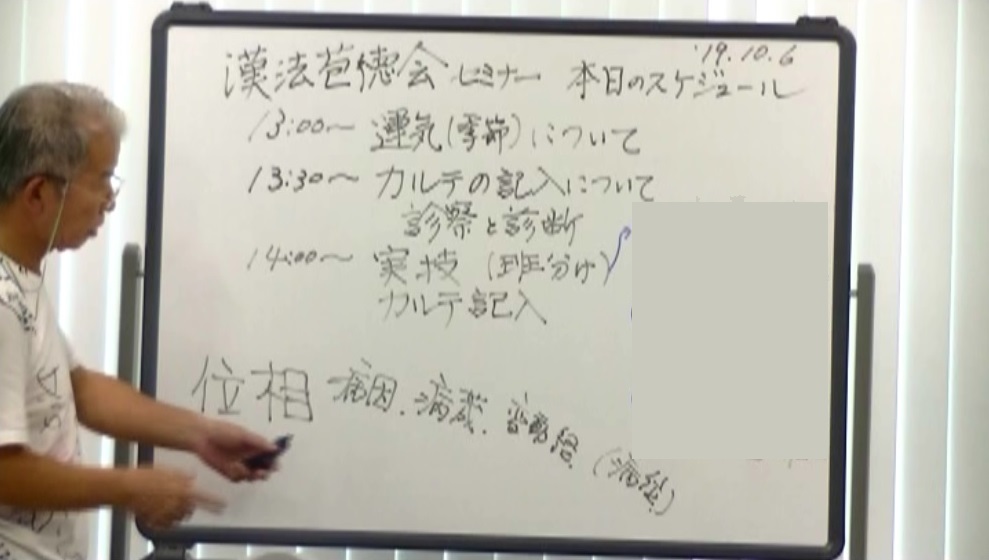 '19.10.6
漢法苞徳会 セミナー 本日のスケジュール
13:00〜 運気(季節)について
13:30〜 カルテの記入について
診察と診断
14:00〜 実技 (班分け)
カルテ記入
位相 病因. 病蔵. 変動経. (病経)